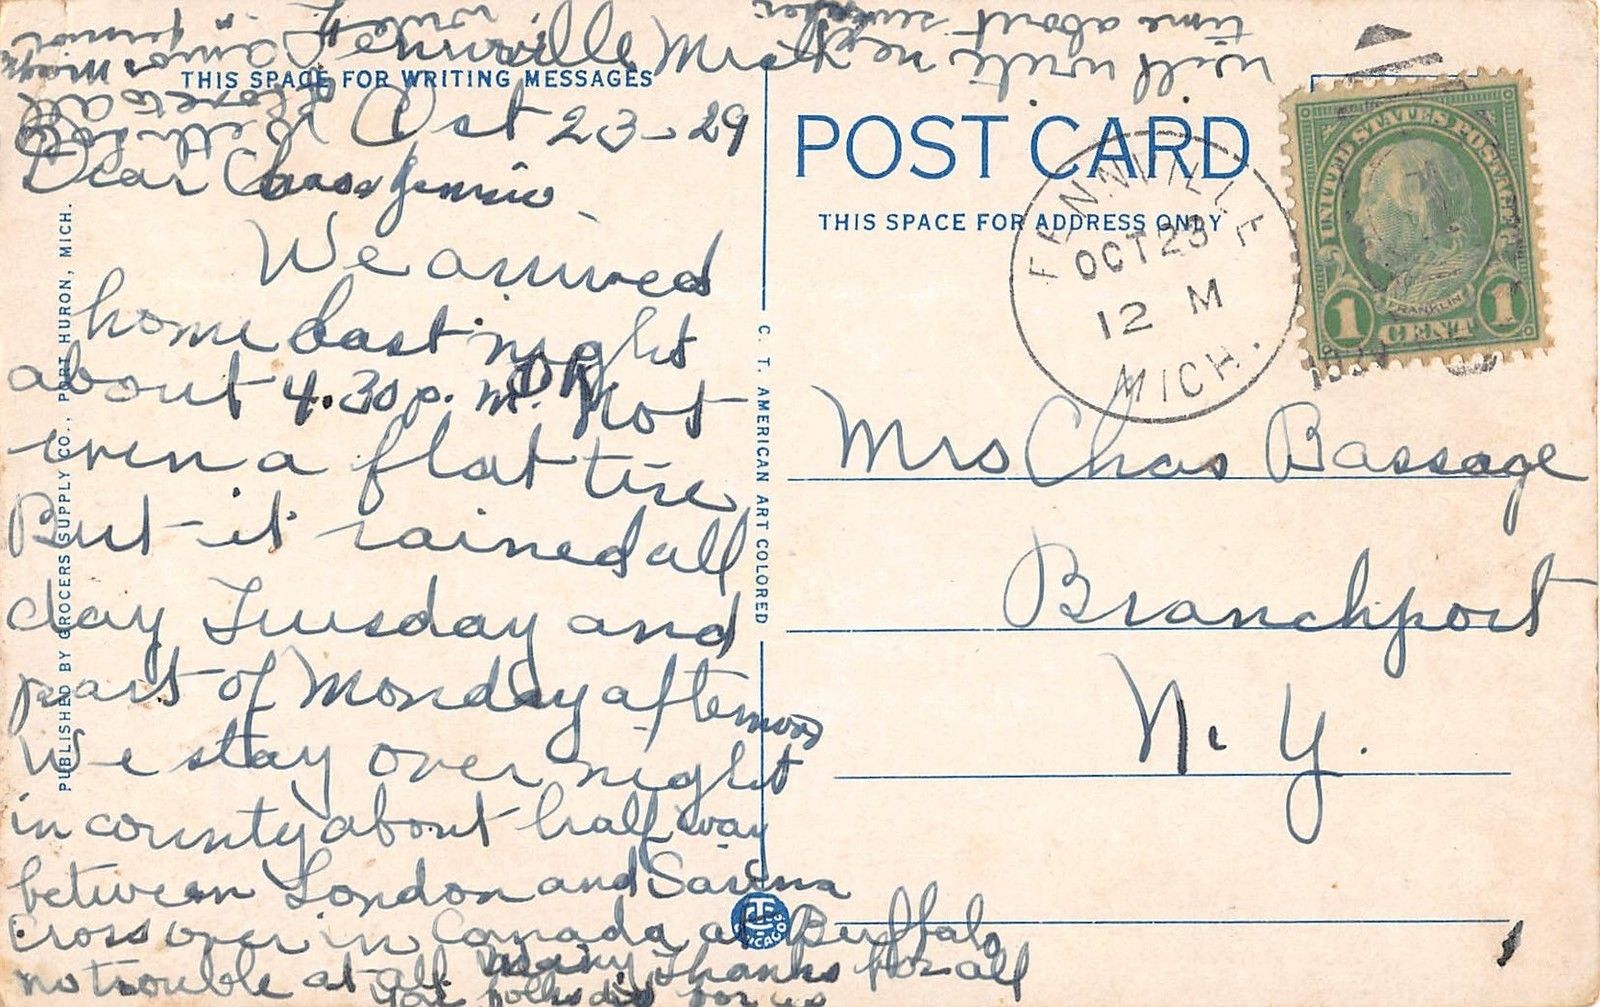 Fennville Mich
THIS SPACE FOR WRITING MESSAGES
Oct 23-29
Dear Chas & Jennie
We arrived
home last night
about 4.30 p. m. OK Not
even a flat tire
But it rained all
day Tuesday and
part of Monday afternoon
We stay over night
in county about half way
between London and Sarina
Cross over in Canada at Buffalo
no trouble at all many Thanks for all
you folks did for us
will write next
time about
write
love to all
PUBLISHED BY GROCERS SUPPLY CO., PORT HURON, MICH.
C. T. AMERICAN ART COLORED
CHICAGO
POST CARD
THIS SPACE FOR ADDRESS ONLY
FENNVILLE
OCT 23
12 M
MICH.
1929
UNITED STATES POSTAGE
FRANKLIN
1 CENT 1
Mrs Chas Bassage
Branchport
N. Y.